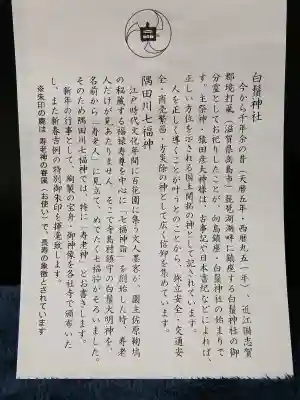 白
白鬚神社
今から千年余の昔(天暦五年・西暦九五一年)、近江国志賀
郡境打嵐(滋賀県高島市)琵琶湖湖畔に鎮座する白鬚神社の御
分霊としてお祀りしたことが、向島鎮座・白鬚神社の始まりで
す。主祭神・猿田彦大神様は、古事記や日本書紀などによれば、
正しい方位を示される国土開拓の神として記されています。
人を正しく導くことが叶うとのことから、旅立安全・交通安
全・商売繁昌・方災除の神として広く信仰を集めています。
隅田川七福神
江戸時代文化年間に百花園に集う文人墨客が、園主佐原鞠塢
の秘蔵する福禄寿尊を中心に「七福神詣」を創始した時、寿老
人だけが見あたりません。そこで寺島村鎮守の白鬚大明神を、
名前から「寿老人」に見立て、めでたく七福神がそろいました。
そのため隅田川七福神では、特に「寿老神」とお書きします。
新年の行事として、陶製の宝舟・御神像を各社寺で頒布いた
し、また新春吉例の特別御朱印を揮毫致します。
※朱印の鹿は「寿老神の眷属(お使い)」で、長寿の象徴とされています